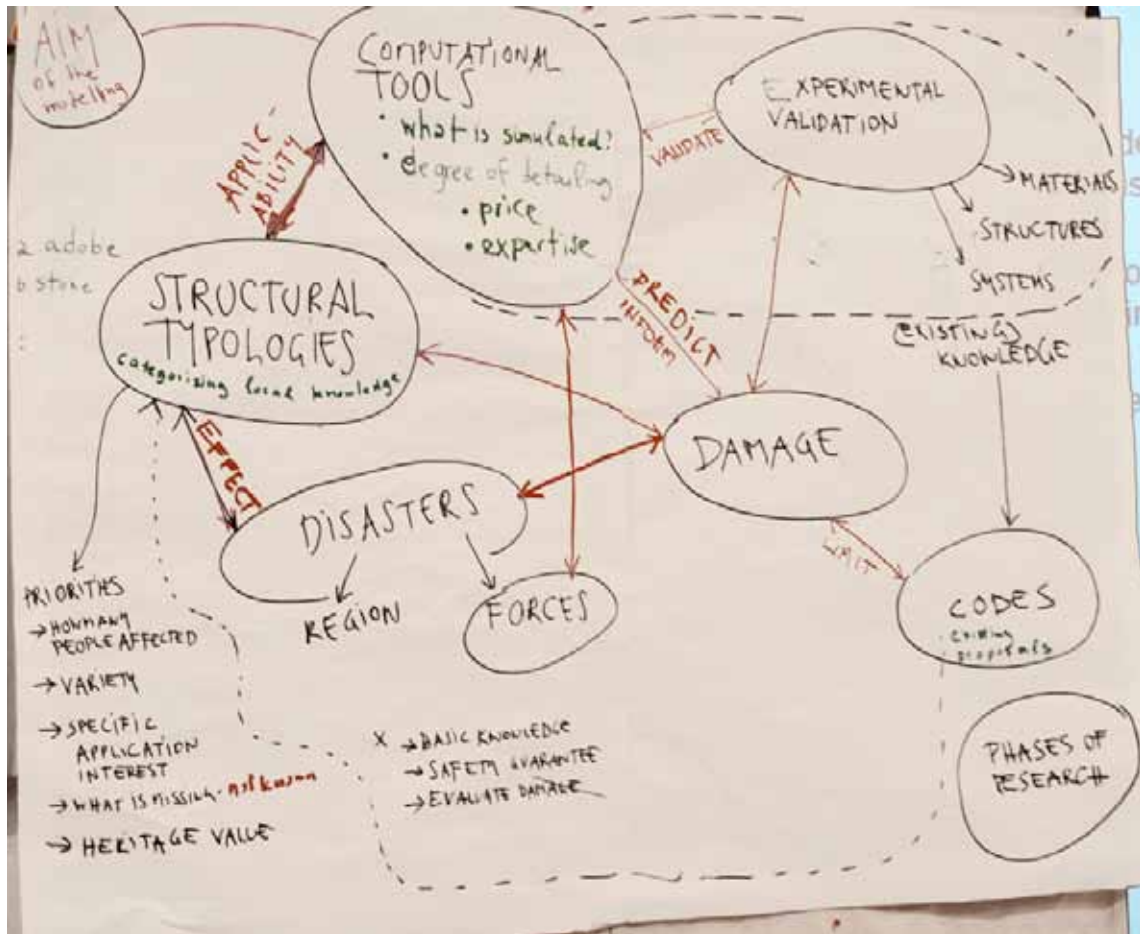 AIM
of the
modelling
COMPUTATIONAL
TOOLS
• what is simulated?
• degree of detailing
• price
• expertise
EXPERIMENTAL
VALIDATION
VALIDATE
→ MATERIALS
STRUCTURES
SYSTEMS
APPLIC-
ABILITY
2. adobe
b. stone
STRUCTURAL
TYPOLOGIES
categorizing local knowledge
PREDICT
INFORM
(EXISTING)
KNOWLEDGE
EFFECT
DAMAGE
DISASTERS
REGION
FORCES
LIMIT
CODES
proposals
PRIORITIES
→ HOW MANY
PEOPLE AFFECTED
→ VARIETY
→ SPECIFIC
APPLICATION
INTEREST
→ WHAT IS MISSING - not known
→ HERITAGE VALUE
X → BASIC KNOWLEDGE
→ SAFETY GUARANTEE
→ EVALUATE DAMAGE
PHASES OF
RESEARCH